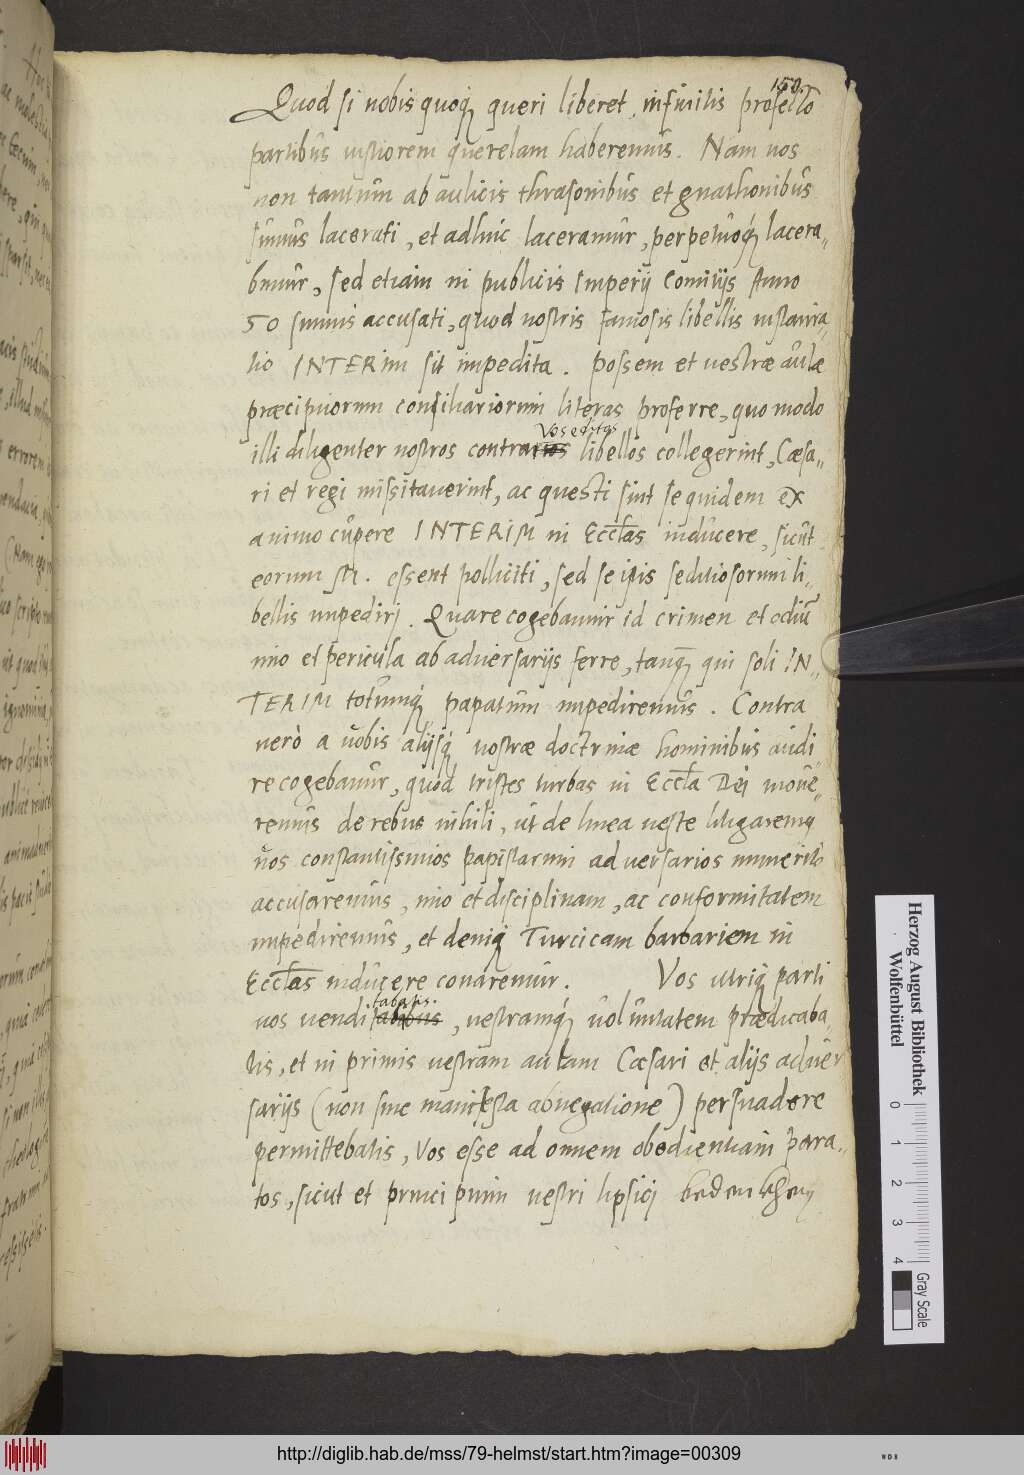 150.
Quod si nobis quoq₃ queri liberet, infinitis profecto
partibus iustiorem querelam haberemus. Nam nos
non tantum ab aulicis thrasonibus et gnathonibus
sumus lacerati, et adhuc laceramur, perpetuoq₃ lacera-
bimur, sed etiam in publicis Imperij Comitijs Anno
50 sumus accusati, quod nostris famosis libellis instaura-
tio INTERim sit impedita. possem et uestræ aulæ
præcipuorum consiliariorum literas proferre, quo modo
Vos editos
illi diligenter nostros contrarios libellos collegerint, Cæsa-
ri et regi missitauerint, ac questi sint se quidem ex
animo cupere INTERIM in Eccl̄as inducere, sicut
eorum essent polliciti, sed se istis seditiosorum li-
bellis impediri. Quare cogebamur id crimen et odiū
imo et pericula ab aduersarijs ferre, tanq̄ qui soli IN-
TERIM totumq₃ papatum impediremus. Contra
uero a uobis alijsq₃ nostræ doctrinæ hominibus audi
re cogebamur, quod tristes turbas in Eccl̄a Dei moue-
remus de rebus nihili, ut de linea ueste litigaremus
uos constantissimos papistarum aduersarios immerito
accusaremus, imo et disciplinam, ac conformitatem
impediremus, et deniq₃ Turcicam barbariem in
Eccl̄as inducere conaremur. Vos utriq₃ parti
tabatis.
uos uendi, uestramq₃ uoluntatem prædicaba-
tis, et in primis uestram aulam Cæsari et alijs aduer
sarijs (non sine manifesta abnegatione) persuadere
permittebatis, Vos esse ad omnem obedientiam para-
tos, sicut et principum uestri lipsici
Herzog August Bibliothek
Wolfenbüttel
0 1 2 3 4
Gray Scale
http://diglib.hab.de/mss/79-helmst/start.htm?image=00309
WDB